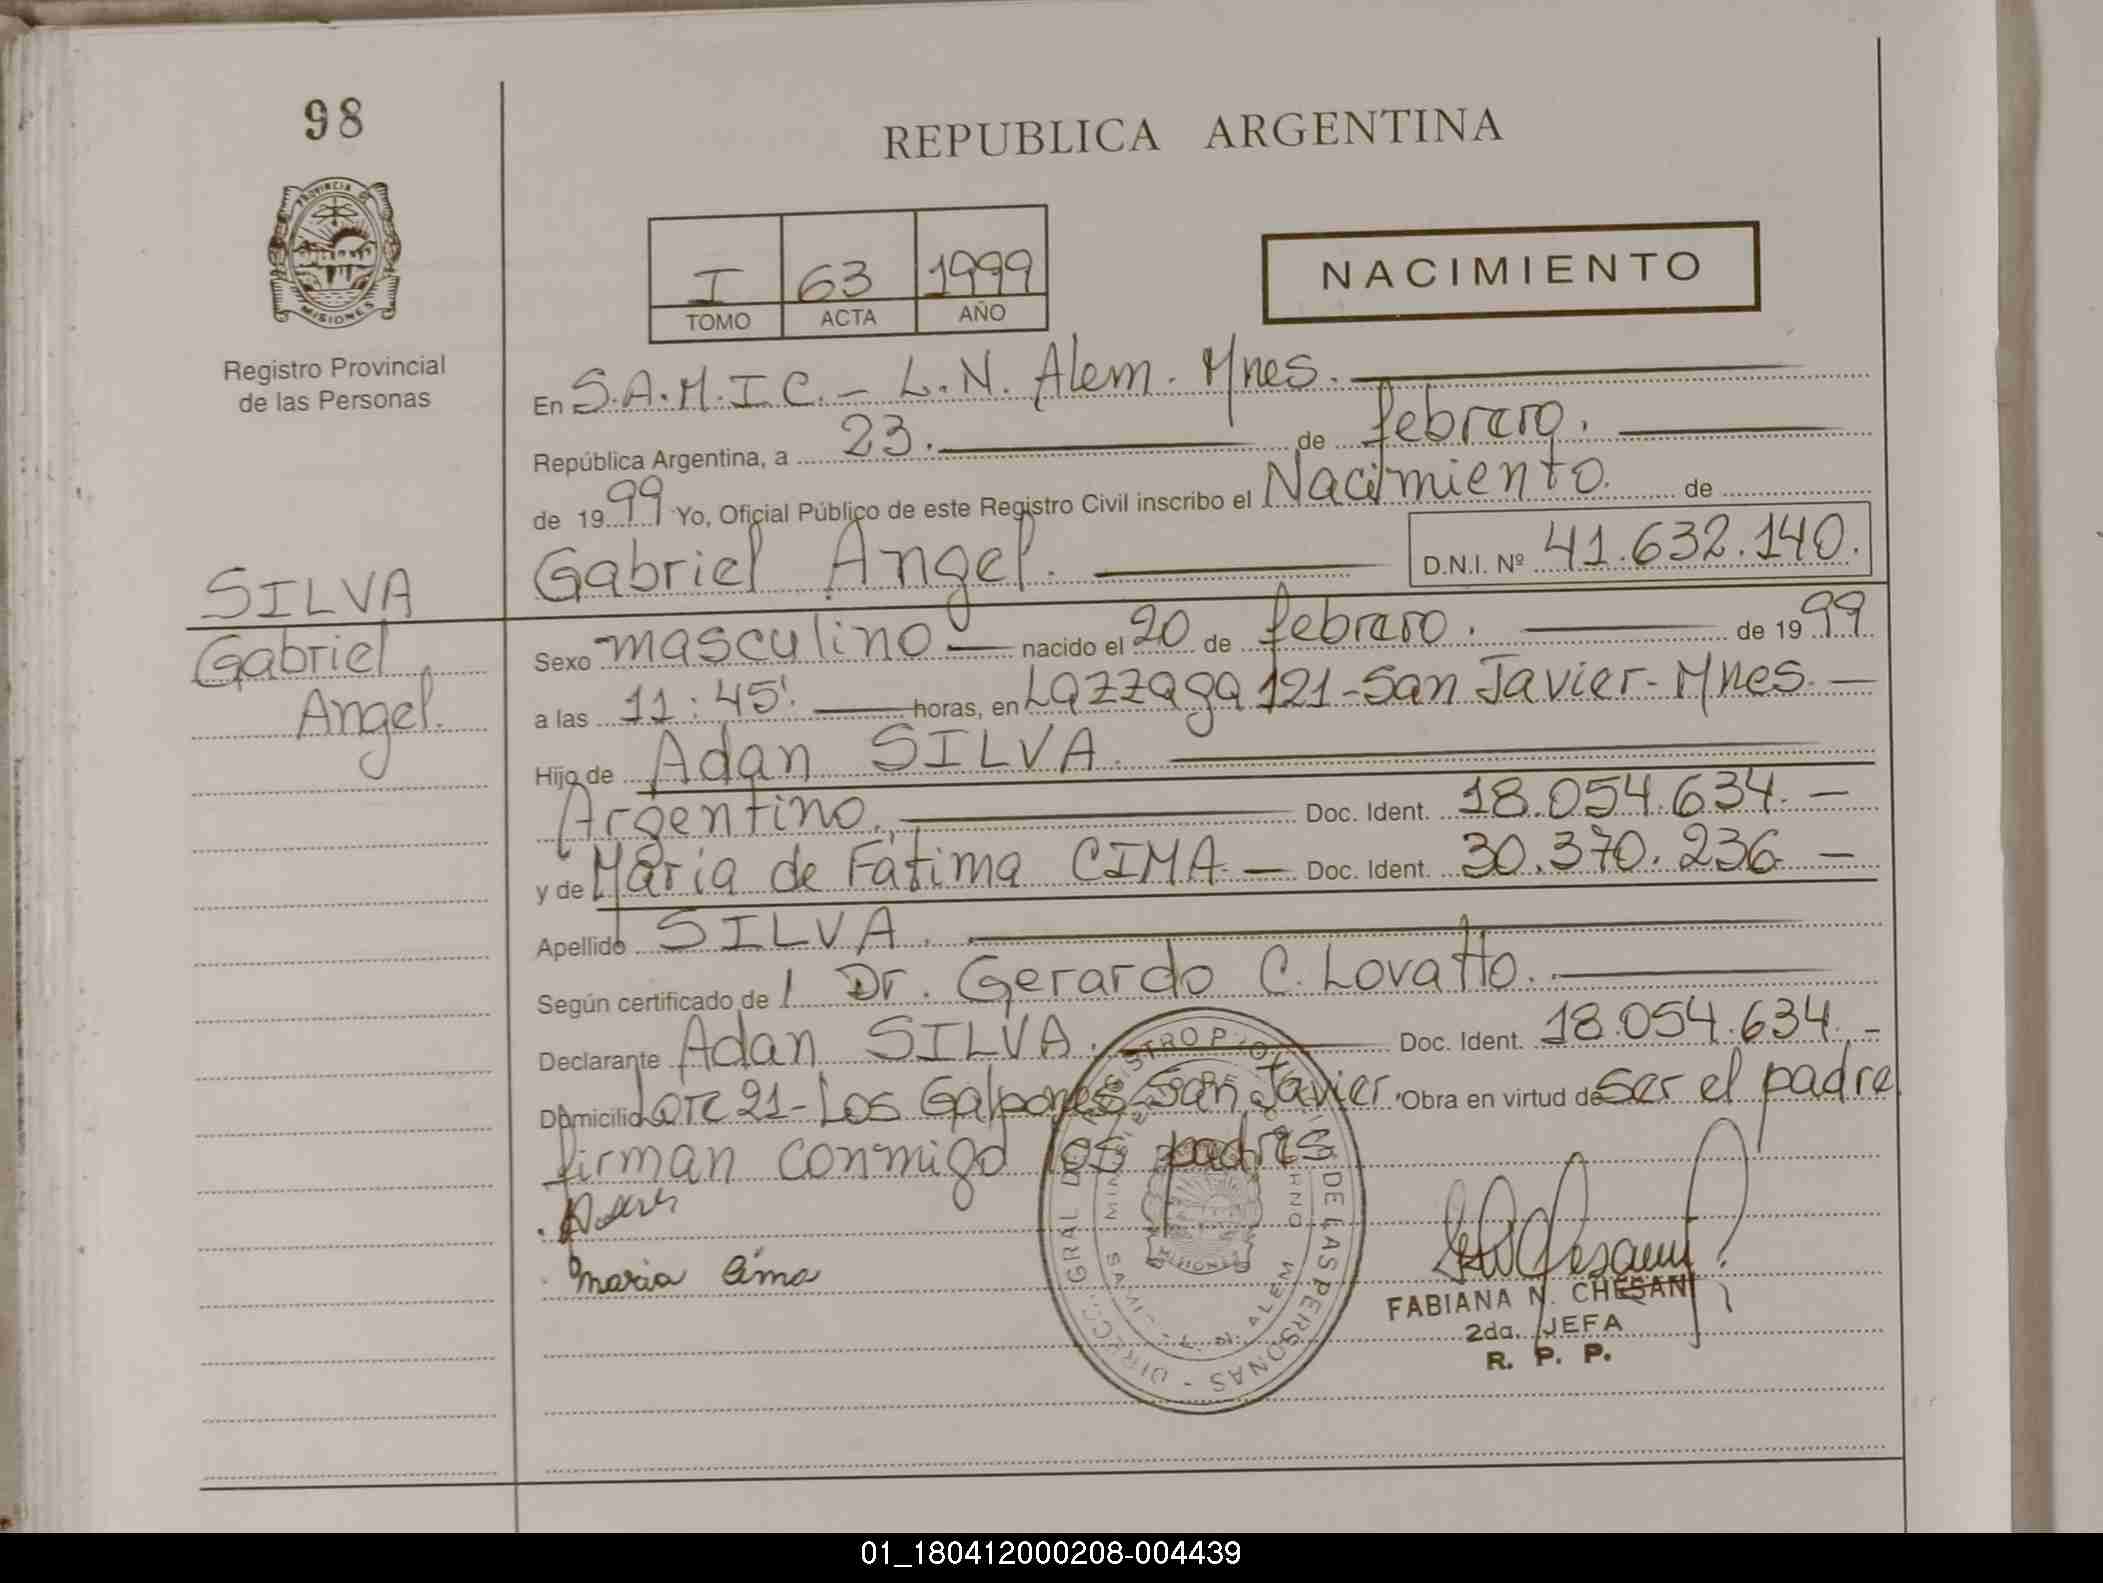 98
REPUBLICA ARGENTINA
PROVINCIA DE
MISIONES
Registro Provincial
de las Personas
I 63 1999
TOMO ACTA AÑO
NACIMIENTO
En S.A.M.I.C. - L.N. Alem. Mnes.
República Argentina, a 23. de febrero.
de 1999 Yo, Oficial Público de este Registro Civil inscribo el Nacimiento. de
Gabriel Angel. D.N.I. Nº 41.632.140.
SILVA
Gabriel
Angel.
Sexo masculino nacido el 20 de febrero. de 1999
a las 11:45' horas, en Lazzaga 121-San Javier-Mnes.
Hijo de Adan SILVA.
Argentino. Doc. Ident. 18.054.634.
y de María de Fátima CIMA Doc. Ident. 30.370.236
Apellido SILVA.
Según certificado de l Dr. Gerardo C. Lovatto.
Declarante Adan SILVA. Doc. Ident. 18.054.634.
Domicilio Lote 21-Los Galpones-San Javier. Obra en virtud de ser el padre
firman conmigo los padres
maria Cima
DE LAS PERSONAS
MISIONES
FABIANA N. CHESANI
2da. JEFA
R. P. P.
01_180412000208-004439